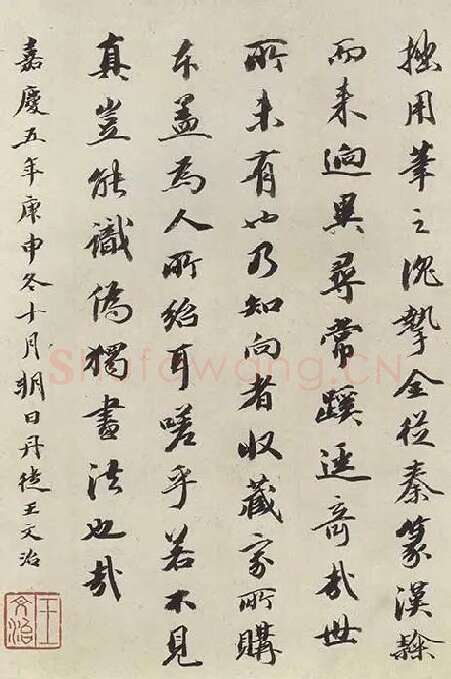 拙用筆之摯全從秦篆漢隸
而来迥異尋常蹊逕奇哉世
所未有也乃知向者收藏家所購
本盖為人所紿耳嗟乎若不見
真豈能識偽獨書法也哉
嘉慶五年庚申冬十月朔日丹徒王文治
王文治
Shufawang.CN